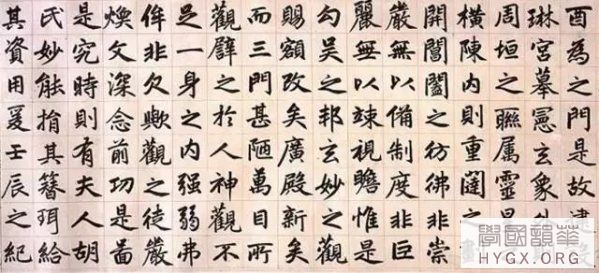 酉為之門是故建
琳宮摹憲玄象外
周垣之聯属靈星
橫陳內則重闥之
開閶闔之彷彿非崇
嚴無以備制度非巨
麗無以竦視瞻惟是
勾吳之邦玄妙之觀
賜額改矣廣殿新矣
而三門甚陋萬目所
觀譬之於人神觀不
足一身之内强弱弗
侔非欠歟觀之徒嚴
煥文深念前功是啚
是究時則有夫人胡
氏妙能捐其簪珥給
其資用爰壬辰之紀
學國韻華
HYGX.ORG